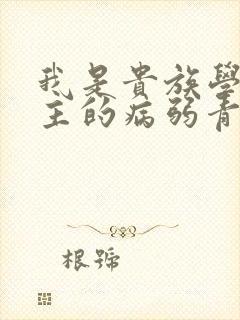 我是貴族學
主的病弱青
根號